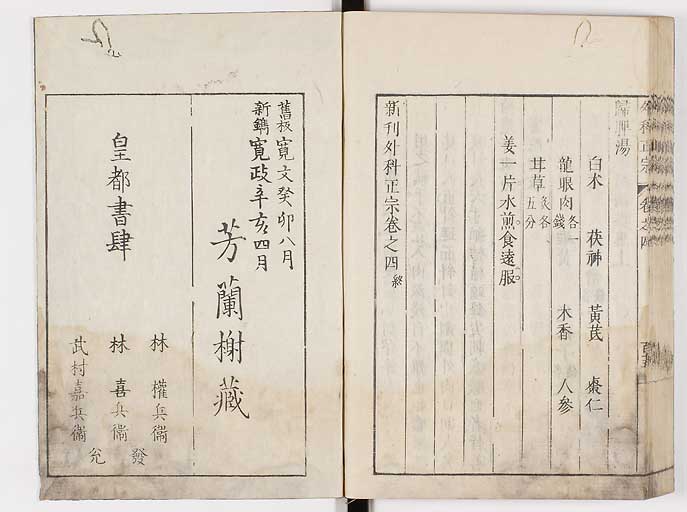 外科正宗 卷之四
歸脾湯
白朮 茯神 黃芪 棗仁
龍眼肉各一錢 木香 人參
甘草炙各五分
姜一片水煎食遠服
新刊外科正宗卷之四終
舊板寬文癸卯八月
新鐫寬政辛亥四月
芳蘭榭藏
皇都書肆
林 權兵衞
林 喜兵衞
武村嘉兵衞
發兌